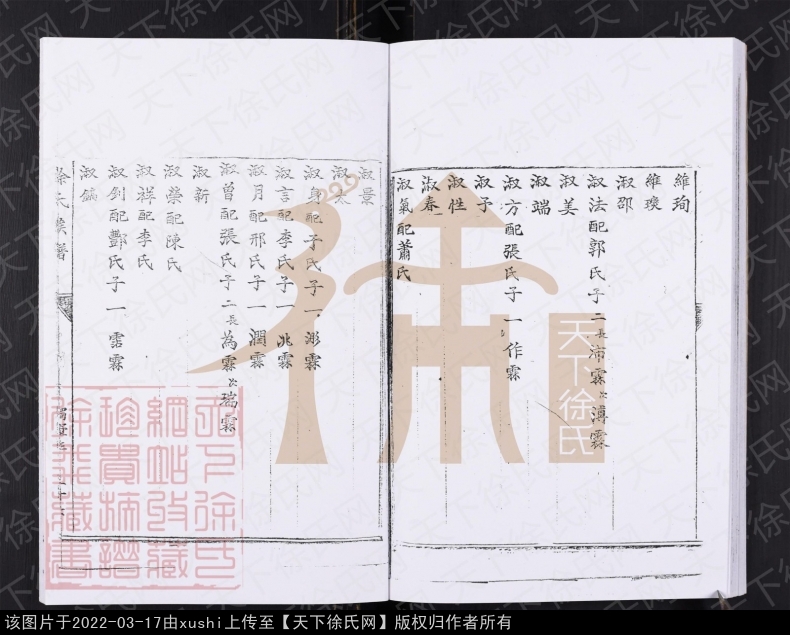 維珣
維瓊
淑邵
淑法配郭氏子二長沛霖次溥霖
淑美
淑端
淑方配張氏子一作霖
淑子
淑性
淑春
淑氣配蕭氏
淑景
淑太
淑身配于氏子一澎霖
淑言配李氏子一兆霖
淑月配邢氏子一潤霖
淑曾配張氏子二長為霖次瑞霖
淑新
淑榮配陳氏
淑祥配李氏
淑釗配酆氏子一霑霖
淑鎬
徐氏族譜
天下徐氏
天下徐氏
網站收藏
珍貴摘譜
徐飛藏書
天下徐氏网
该图片于2022-03-17由xushi上传至【天下徐氏网】版权归作者所有